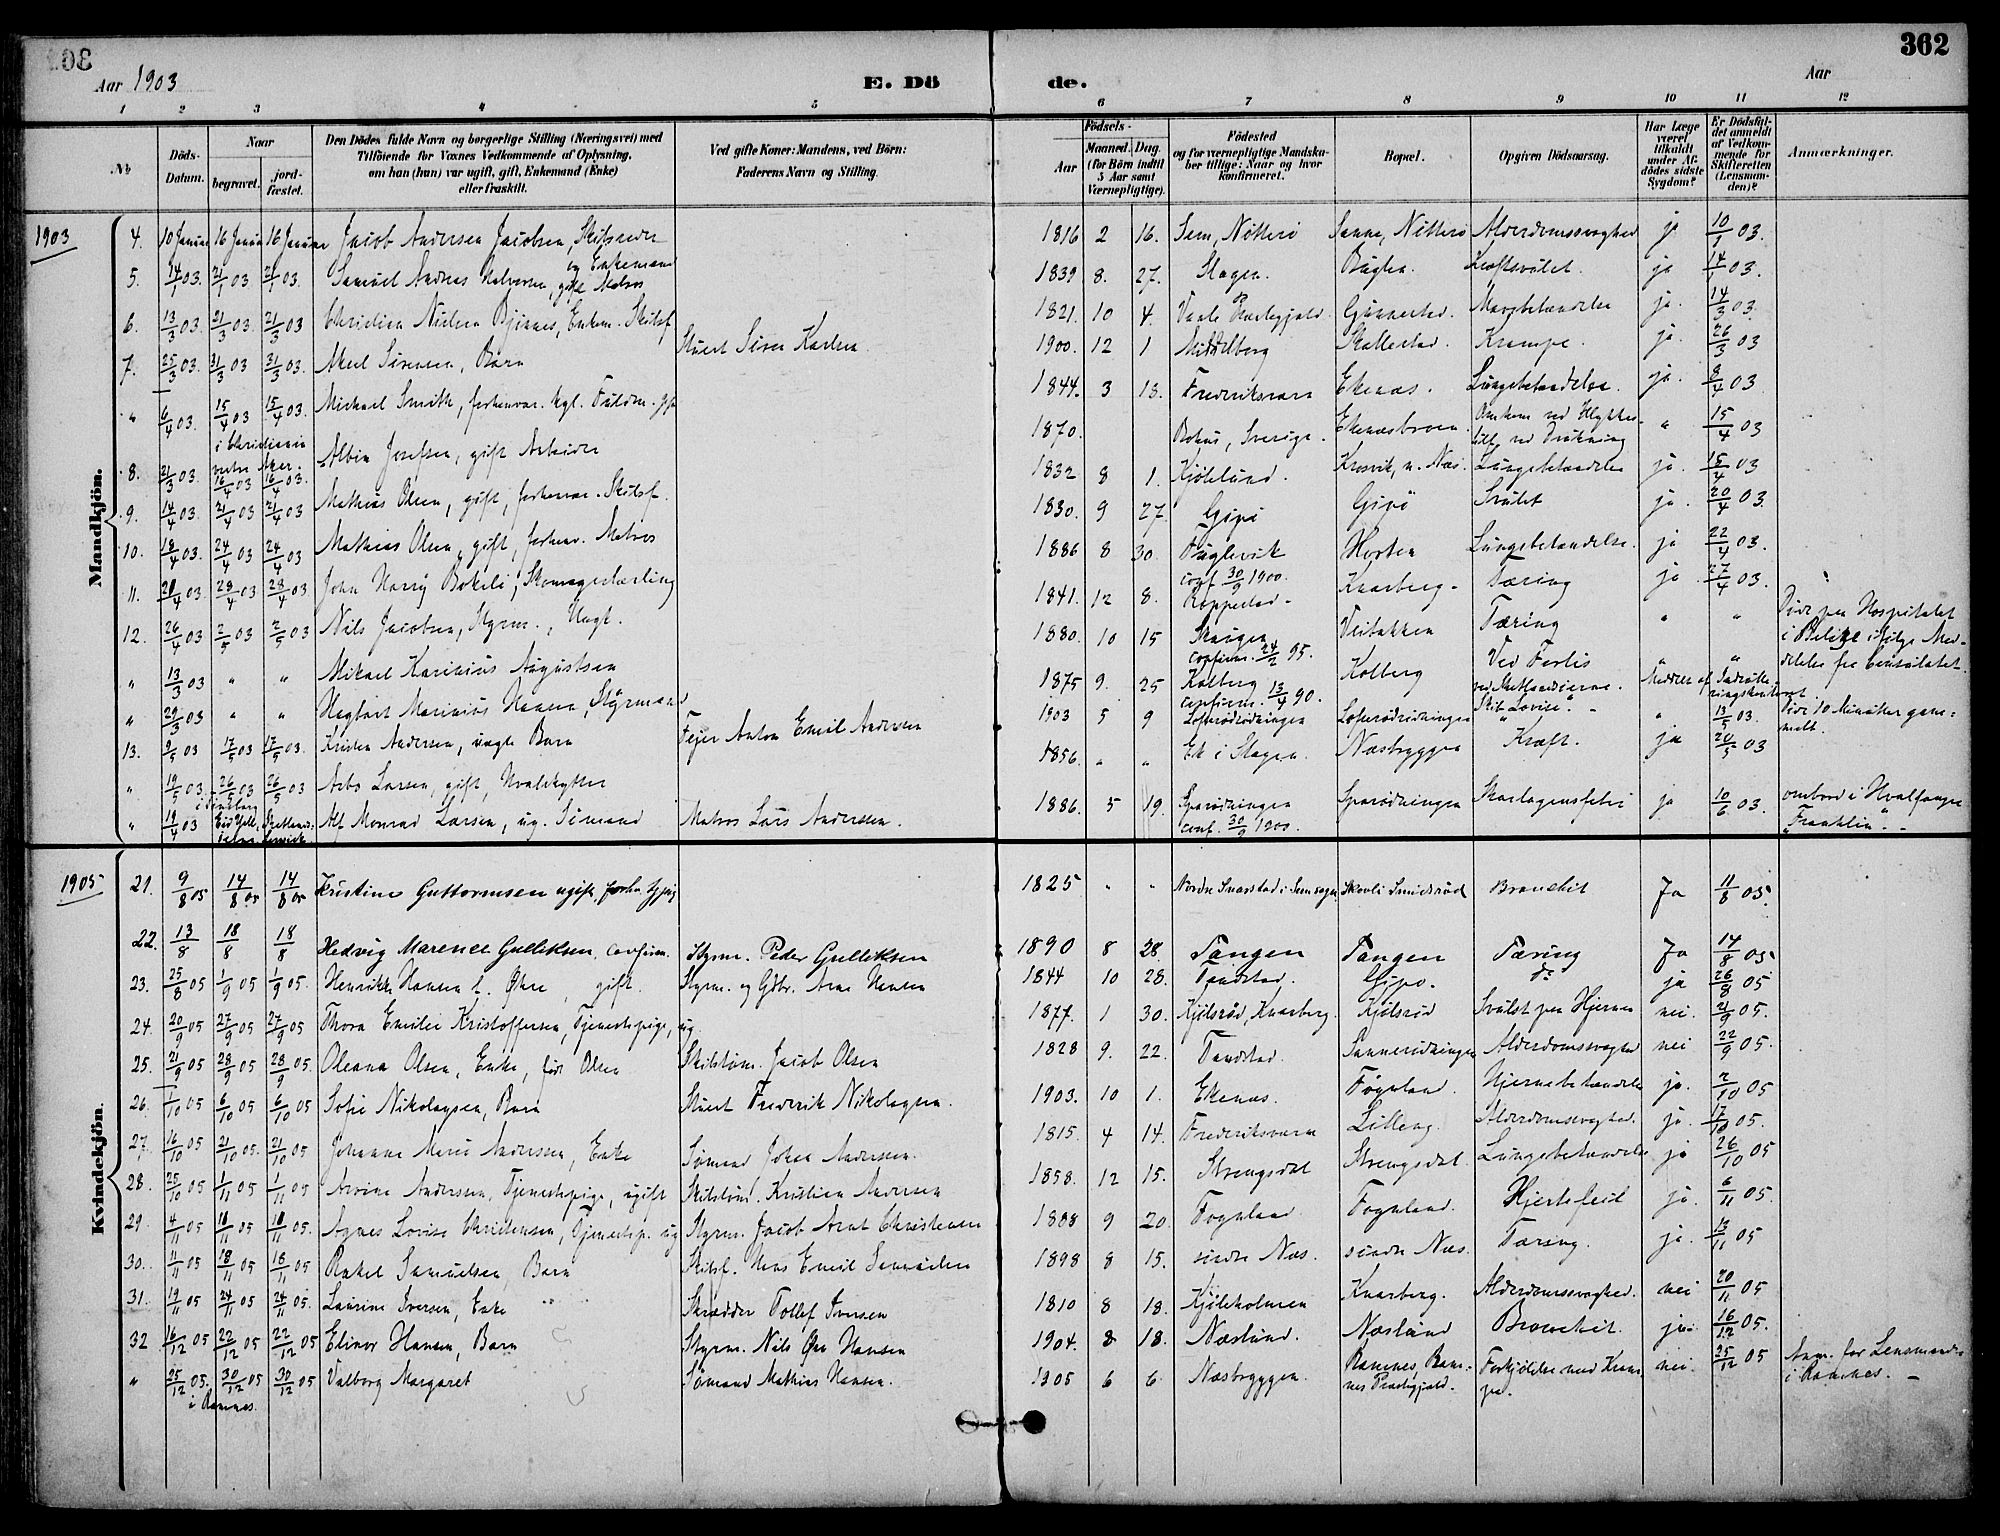 362
Aar 1903
E. Dö de.
Aar
1 2 3 4 5 6 7 8 9 10 11 12
No
Döds-Datum.
Naar
begravet.
jord-fæstet.
Den Dödes fulde Navn og borgerlige Stilling (Næringsvei) med
Tilföiende for Voxnes Vedkommende af Oplysning,
om han (hun) var ugift, gift, Enkemand (Enke)
eller fraskilt.
Ved gifte Koner: Mandens, ved Börn:
Faderens Navn og Stilling.
Födsels-
Aar
Maaned. Dag.
(for Börn indtil
5 Aar samt
Værnepligtige).
Födested
og for værnepligtige Mandska-
ber tillige: Naar og hvor
konfirmeret.
Bopæl.
Opgiven Dödsaarsag.
Har Læge
været
tilkaldt
under Af-
dödes sidste
Sygdom?
Er Dödsfal-
det anmeldt
af Vedkom-
mende for
Skifteretten
(Lensman-
den)?
Anmærkninger.
Mandkjön.
1903
4. 10 Januar 16 Januar 16 Januar Jacob Andersen Jacobsen, Skibsreder og Enkemand 1816 2 16. Sem, Nötterö Sanne, Nötterö Alderdomssvaghed ja 10/1 03.
5. 14/1 03. 21/1 03 21/1 03. Samuel Andreas Halvorsen, gift Matros 1839 8. 27. Skagen. Buglen. Kræftsvulst. ja 14/1 03.
6. 13/3 03. 21/3 03. 21/3 03 Christian Nielsen Bjönnes, Enkem. Skibsf. 1821. 10 4. Vaale Præstegjæld. Gunnestad. Mavebetændelse ja. 14/3 03.
7. 25/3 03. 31/3 03 31/3 03. Aksel Sörensen, Barn Stuert Sören Karlsen 1900. 12 1 Middelborg Skallestad. Krampe. ja. 26/3 03
" 6/4 03. 15/4 03 15/4 03. Michael Smith, forhenvær. kgl. Fuldm. gift 1844. 3 13. Fredriksværn Ekenæs. Lungebetændelse. ja. 8/4 03
i Christiania vestre Aker.
8. 21/3 03. 16/4 03 16/4 03. Albin Josefsen, gift Arbeider 1870. Bohus, Sverige. Ekenæsbroen. Omkom ved Ulykkes-tilf. ved Drukning " 15/4 03
9. 14/4 03. 21/4 03. 21/4 03 Mathias Olsen, gift, forhenvær. Skibsf. 1832 8 1. Kjölelund. Krosvik, n. Næs. Lungebetændelse ja. 15/4 03
10. 18/4 03. 24/4 03 24/4 03 Mathias Olsen, gift, forhenv. Matros 1830. 9 27. Gipö Gipö Svulst ja. 20/4 03.
11. 20/4 03 28/4 03 28/4 03 John Harry Bokeli, Skomagerlærling 1886 8 30. Fuglevik conf. 30/9 1900. Horten Lungebetændelse. ja 22/4 03.
12. 26/4 03 2/5 03 2/5 03 Nils Jacobsen, Styrm., Ungk. 1841. 12 8. Roppestad. Knarberg. Tæring ja 27/4 03.
" 13/3 03 " " Mikael Karinius Augustsen 1880. 10 15 Skaugen confirm. 24/2 95. Veibakken Tæring " " Död paa Hospitalet i Belize ifölge Med-delelse fra Consulatet.
" 29/3 03 " " Hagbart Marinius Hansen, Styrmand 1875 9. 25 Kolberg confirm. 13/4 90. Kolberg Ved Forlis ved Shetlandsöerne. Skib "Lovise".
13. 9/5 03 17/5 03 17/5 03. Kristen Andersen, uægte Barn Fejer Anton Emil Andersen 1903 5 9 Lofterödrödningen Lofterödrödningen " " 13/5 03. Död 10 Minutter gam-melt.
" 19/5 03. 26/5 03 26/5 03 Arbo Larsen, gift, Hvalskytter 1856. " " Ek i Skagen. Næsbryggen Kræft. ja 20/5 03
" 19/4 03 Alf Monrad Larsen, ug. Sömand Matros Lars Anderssen. 1886. 5 19. Sparödningen conf. 30/9 1900. Sparödningen Skarlagensfeber ja 10/6 03. ombord i Hvalfanger "Franklin".
Kvindekjön.
1905
21. 9/8 05 14/8 05 14/8 05 Kristine Guttormsen ugift, forhv. Tj.pig 1825 " " Nordre Snarstad i Sem sogn Skovli Smidsröd Bronchit Ja 11/8 05.
22. 13/8 18/8 18/8 Hedvig Marence Gulliksen, confirm. Styrm. Peder Gulliksen 1890 8 28. Tangen Tangen Tæring Ja 14/8 05.
23. 25/8 05 1/9 05 1/9 05. Henrikke Hansen f. Öhre, gift. Styrm. og Gdbr. Arne Hansen 1844 10 28. Tandstad. Gipö. do ja 26/8 05
24. 20/9 05 27/9 05 27/9 05 Thora Emilie Kristoffersen, Tjenestepige, ug. 1877. 1 30. Kjölsröd, Knarberg. Kjölsröd Svulst paa Hjernen nei 21/9 05.
25. 21/9 05 28/9 05 28/9 05. Oleana Olsen, Enke, föd Olsen Skibstöm. Jacob Olsen 1828 9. 22. Tandstad. Sannerödningen Alderdomssvaghed nei 22/9 05.
26. 1/10 05 6/10 05 6/10 05 Sofie Nikolaysen, Barn Stuert Frederik Nikolaysen. 1903. 10 1. Ekenæs. Föynland. Hjernebetændelse ja. 2/10 05
27. 16/10 05 21/10 05. 21/10 05 Johanne Marie Anderssen, Enke Sömand Johan Anderssen. 1815. 4 14. Fredriksværn Lilleng. Alderdomssvaghed. ja. 17/10 05.
28. 25/10 05 1/11 05 1/11 05 Anine Anderssen, Tjenestepige, ugift Skibstöm. Kristian Andersen 1858. 12 15. Strengsdal Strengsdal. Lungebetændelse ja 26/10 05
29 4/11 05 10/11 05 10/11 05. Agnes Lovise Christensen, Tjenestep. ug Styrm. Jacob Arnt Christensen 1888 9 20. Föynland Föynland. Hjertefeil ja. 6/11 05.
30. 11/11 05 18/11 05 18/11 05 Rakel Samuelsen, Barn Skibsf. Hans Emil Samuelsen 1898 8 15. söndre Næs. söndre Næs. Tæring. ja. 13/11 05
31. 19/11 05 24/11 05 24/11 05. Laurine Iversen, Enke Skrædder Tollef Iversen 1810 8 18. Kjöleholmen Knarberg. Alderdomssvaghed. nei 20/11 05
32 16/12 05 22/12 05 22/12 05 Elinor Hansen, Barn Styrm. Nils Öre Hansen 1904. 8 18. Næslund. Næslund Bronchit. ja. 16/12 05.
" 25/12 05. 30/12 05 30/12 05 Valborg Margaret Sömand Mathias Hansen. 1905 6 6. Næsbryggen. Ramnes, Ram-nes Præstegjæld. Forkjölelse med Kram-pe. nei 25/12 05 Anm. for Lensmanden i Ramnes.
i Ramnes.